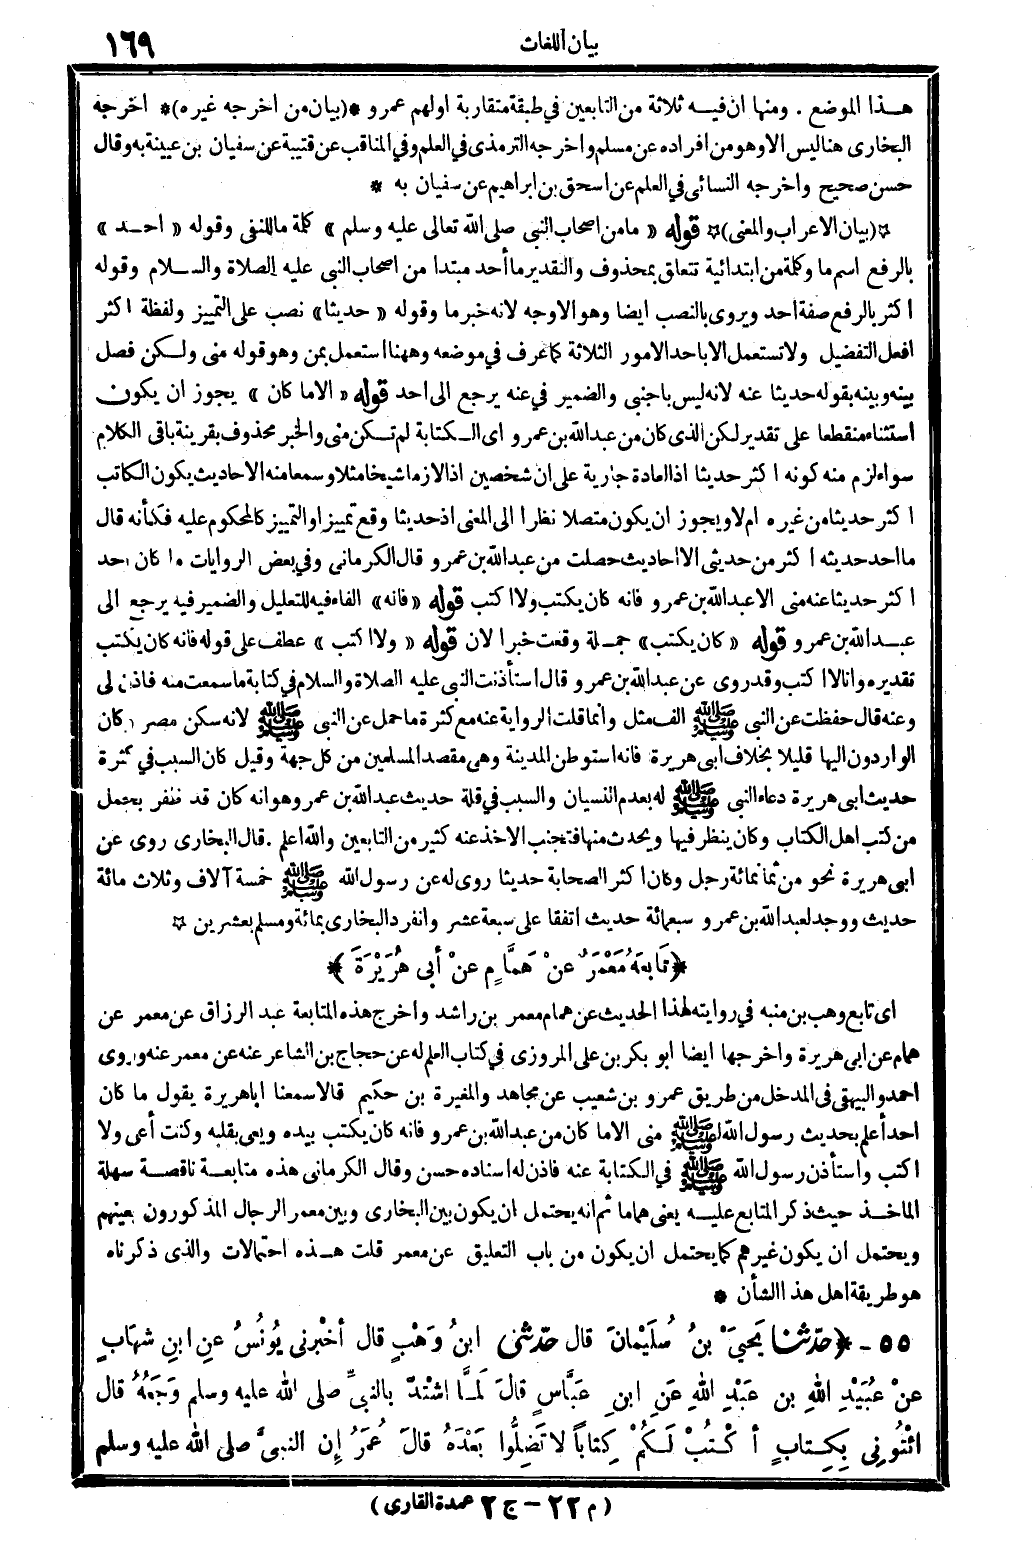 بيان اللغات
١٦٩
هـذا الموضع . ومنها ان فيـه ثلاثة من التابعين في طبقة متقاربة اولهم عمرو *(بيان من اخرجه غيره)* اخرجه
البخارى هنا ليس الا وهو من افراده عن مسلم واخرجه الترمذى في العلم وفي المناقب عن قتيبة عن سفيان بن عيينة به وقال
حسن صحيح واخرجه النسائى في العلم عن اسحق بن ابراهيم عن سفيان به *
☆(بيان الاعراب والمعنى)☆ قوله « ما من اصحاب النبي صلى الله تعالى عليه وسلم » كلمة ما للنفي وقوله « احـد »
بالرفع اسم ما وكلمة من ابتدائية تتعلق بمحذوف والتقدير ما أحد مبتدا من اصحاب النبي عليه الصلاة والسـلام وقوله
اكثر بالرفع صفة احد ويروى بالنصب ايضا وهو الاوجه لانه خبر ما وقوله « حديثا» نصب على التمييز ولفظة اكثر
افعل التفضيل ولا تستعمل الا باحد الامور الثلاثة كما عرف في موضعه وههنا استعمل بمن وهو قوله منى ولـكن فصل
بينه وبينه بقوله حديثا عنه لانه ليس باجنبى والضمير في عنه يرجع الى احد قوله « الا ما كان » يجوز ان يكون
استثناء منقطعا على تقدير لكن الذى كان من عبد الله بن عمرو اى الـكتابة لم تـكن منى والخبر محذوف بقرينة باقى الكلام
سواء لزم منه كونه اكثر حديثا اذ العادة جارية على ان شخصين اذا لازما شيخا مثلا وسمعا منه الاحاديث يكون الكاتب
اكثر حديثا من غيره ام لا ويجوز ان يكون متصلا نظرا الى المعنى اذ حديثا وقع تمييزا والتمييز كالمحكوم عليه فكأنه قال
ما احد حديثه اكثر من حديثى الا احاديث حصلت من عبد الله بن عمرو قال الكرمانى وفي بعض الروايات ما كان احد
اكثر حديثا عنه منى الا عبد الله بن عمرو فانه كان يكتب ولا اكتب قوله «فانه» الفاء فيه للتعليل والضمير فيه يرجع الى
عبـد الله بن عمرو قوله « كان يكتب» جمـلة وقعت خبرا لان قوله « ولا اكتب » عطف على قوله فانه كان يكتب
تقديره وانا لا اكتب وقد روى عن عبد الله بن عمرو قال استأذنت النبي عليه الصلاة والسلام في كتابة ما سمعت منه فاذن لى
وعنه قال حفظت عن النبى ﷺ الف مثل وانما قلت الرواية عنه مع كثرة ما حمل عن النبى ﷺ لانه سكن مصر وكان
الواردون اليها قليلا بخلاف ابى هريرة فانه استوطن المدينة وهى مقصد المسلمين من كل جهة وقيل كان السبب في كثرة
حديث ابى هريرة دعاء النبى ﷺ له بعدم النسيان والسبب في قلة حديث عبد الله بن عمر وهو انه كان قد ظفر بجمل
من كتب اهل الكتاب وكان ينظر فيها ويحدث منها فتجنب الاخذ عنه كثير من التابعين والله اعلم . قال البخارى روى عن
ابى هريرة نحو من ثمانمائة رجل وكان اكثر الصحابة حديثا روى له عن رسول الله ﷺ خمسة آلاف وثلاث مائة
حديث ووجد لعبد الله بن عمرو سبعمائة حديث اتفقا على سبعة عشر وانفرد البخارى بمائة ومسلم بعشرين ☆
﴿تَابعَهُ مَعْمَرٌ عنْ هَمَّامٍ عنْ أبى هُرَيْرَةَ﴾
اى تابع وهب بن منبه في روايته لهذا الحديث عن همام معمر بن راشد واخرج هذه المتابعة عبد الرزاق عن معمر عن
همام عن ابى هريرة واخرجها ايضا ابو بكر بن على المروزى في كتاب العلم له عن حجاج بن الشاعر عنه عن معمر عنه وروى
احمد والبيهقى فى المدخل من طريق عمرو بن شعيب عن مجاهد والمغيرة بن حكيم قالا سمعنا ابا هريرة يقول ما كان
احد أعلم بحديث رسول الله ﷺ منى الا ما كان من عبد الله بن عمرو فانه كان يكتب بيده ويعى بقلبه وكنت أعى ولا
اكتب واستأذن رسول الله ﷺ في الكتابة عنه فاذن له اسناده حسن وقال الكرمانى هذه متابعـة ناقصـة سهلة
الماخـذ حيث ذكر المتابع عليـه يعنى هماما ثم انه يحتمل ان يكون بين البخارى وبين معمر الرجال المذكورون بعينهم
ويحتمل ان يكون غيرهم كما يحتمل ان يكون من باب التعليق عن معمر قلت هـذه احتمالات والذى ذكرناه
هو طريقة اهل هذا الشأن *
٥٥ - ﴿حدّثنا يَحيىَ بنُ سُلَيْمانَ قال حدّثنى ابنُ وَهْبٍ قال أخْبرنى يُونُسُ عنِ ابنِ شهَابٍ
عنْ عُبَيْدِ اللهِ بن عَبْدِ اللهِ عَنِ ابنِ عَبَّاسٍ قالَ لَمَّا اشْتَدّ بالنبيِّ صلى الله عليه وسلم وَجَعُهُ قال
ائْتُونِى بِكِـتابٍ أكْتُبْ لَـكُمْ كِتاباً لا تَضِلُّوا بَعْدَهُ قالَ عُمَرُ إن النبىَّ صلى الله عليه وسلم
(م ٢٢ - ج ٢ عمدة القارى)